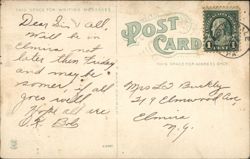 THIS SPACE FOR WRITING MESSAGES
POST CARD
THIS SPACE FOR ADDRESS ONLY
1
Dear & all,
Will be in
Elmira not
later then Friday
and maybe
sooner, if all
goes well.
Hope all are
O.K. Bob
Mrs Burkley
219 Elmwood Ave
Elmira
N.Y.